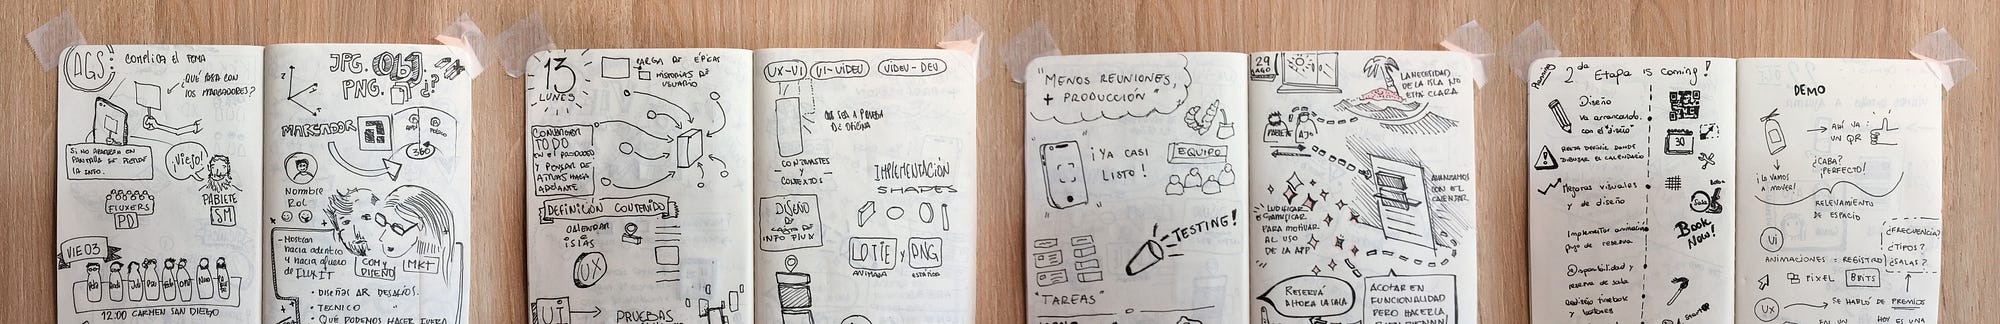 AGS:
COMPLICA EL TEMA
¿QUÉ PASA CON
LOS MARCADORES?
SI NO APARECEN EN
PANTALLA SE PIERDE
LA INFO.
¡VIEJO!
PABLETE
SM
FLUXERS
PD
VIE 03
12:00 CARMEN SAN DIEGO
JPG. Obj
PNG. ¿?
MARCADOR
360°
Nombre
Rol
- Mostrar
hacia adentro
y hacia afuera
de FLUXIT
COM y
DISEÑO
MKT
• DISEÑAR AR DESAFÍOS.
• TECNICO
• QUÉ PODEMOS HACER FUERA
13
LUNES
CARGA DE ÉPICAS
HISTORIAS DE
USUARIO
TODO
EN EL PROCESO
Y PENSAR DE
AHORA HACIA
ADELANTE
DEFINICIÓN CONTENIDO
CALENDAR
ISLAS
UX
UI
PRUEBAS
UX-UI
UI-VIDEU
VIDEU-DEV
QUE SEA A PRUEBA
DE OFICINA
CONTRASTES
Y
CONTEXTOS
IMPLEMENTACIÓN
SHAPES
DISEÑO
DE
INFO FLUX
LOTTIE y PNG
ANIMADA
"MENOS REUNIONES,
+ PRODUCCIÓN"
¡YA CASI
LISTO!
EQUIPO
TESTING!
"TAREAS"
29
AGO
LA NECESIDAD
DE LA ISLA NO
ESTÁ CLARA
PABLETE
AJO
AVANZAMOS
CON EL
CALENDAR
LUDIFICAR
GAMIFICAR
PARA MOTIVAR
AL USO
DE LA APP
RESERVÁ
AHORA LA SALA
ACOTAR EN
FUNCIONALIDAD
PERO HACERLA
Planning
2da Etapa is coming!
Diseño
va arrancando
con el "diseño"
RESTA DEFINIR DONDE
DIBUJAR EL CALENDARIO
30
Mejoras visuales
y de diseño
Sala
Book
Now!
Implementar animación
flujo de reserva
Disponibilidad y
reserva de sala
DEMO
→ AHÍ VA
UN QR
¡LA VAMOS
A MOVER!
¿CABA?
¡PERFECTO!
RELEVAMIENTO
DE ESPACIO
UI
¿FRECUENCIA?
¿TIPOS?
¿SALAS?
ANIMACIONES = REGISTRO
PIXEL
8BITS
UX
→ SE HABLÓ DE PREMIOS
EN UN
HOY ES UNA